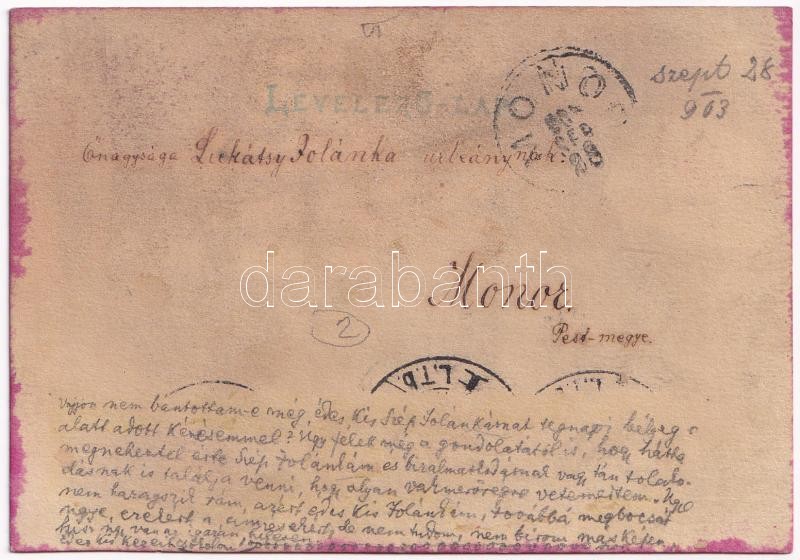 LEVELEZŐ-LAP
MONOR
szept 28
903
Őnagysága Lukátsy Jolánka urleánynak.
darabanth
Monor.
Pest-megye.
2
L.T.D.
Vajjon nem bántottam-e még, édes kis Szép Jolánkámat tegnapi bélyeg
alatt adott kérésemmel? Ugy félek még a gondolatától is, hogy hátha
megneheztel érte Szép Jolánkám és bizalmaskodásnak vagy tán tolako-
dásnak is találja venni, hogy olyan vakmerőségre vetemedtem. Ugye
nem haragszik rám, azért édes kis Jolánkám, továbbá megbocsát
ugye, ezekért a de nem tudom, nem birom maskepen
hisz ugy van az igazán
édes kis kezeit